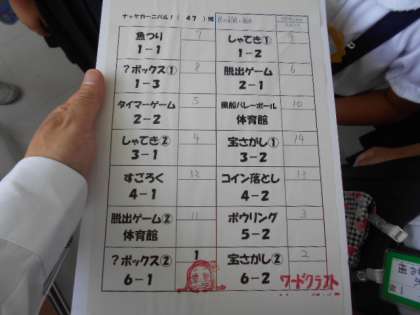 ナッセカーニバル！（ 47 ）班
魚つり 7 しゃてき①
1-1 1-2
？ボックス① 8 脱出ゲーム 6
1-3 2-1
タイマーゲーム 5 風船バレーボール 10
2-2 体育館
しゃてき② 4 宝さがし① 14
3-1 3-2
すごろく 12 コイン落とし 13
4-1 4-2
脱出ゲーム② 11 ボウリング 3
体育館 5-2
？ボックス② 1 宝さがし② 2
6-1 6-2 ワードクラフト